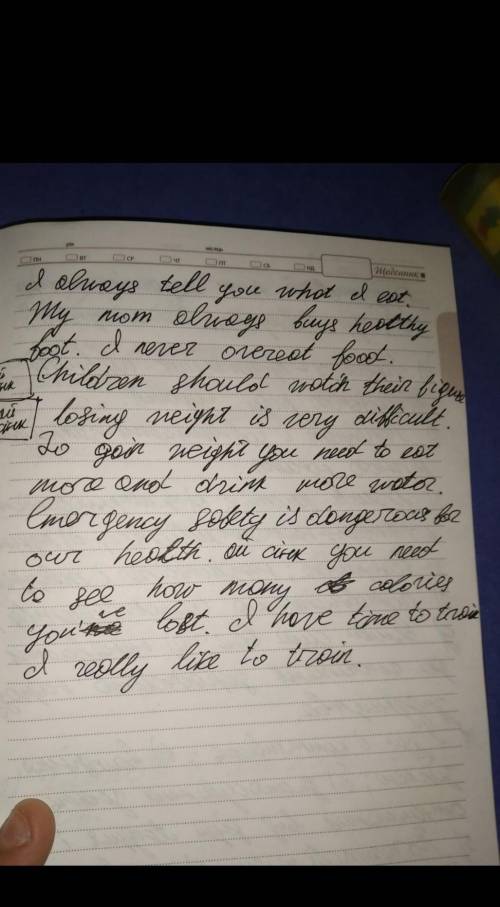 рік місяць
ПН ВТ СР ЧТ ПТ СБ НД Щоденник
I always tell you what I eat.
My mom always buys healthy
foot. I never overeat food.
Children should watch their figure
losing weight is very difficult.
To gain weight you need to eat
more and drink more water.
Emergency safety is dangerous for
our health. you need
to see how many colories
you've lost. I have time to train
I really like to train.